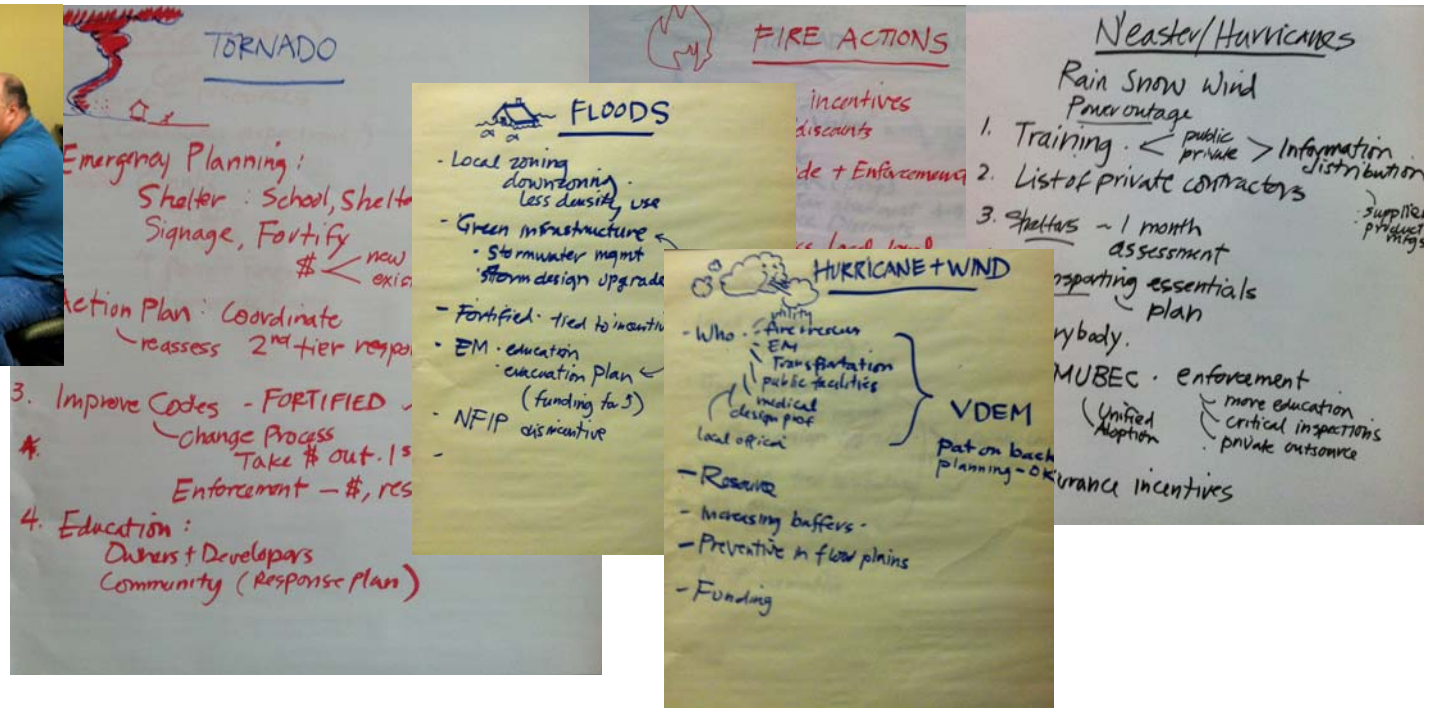 TORNADO
Emergency Planning :
Shelter : School, Shelte
Signage, Fortify
$ new
exis
Action Plan : Coordinate
reassess 2nd tier respo
3. Improve Codes - FORTIFIED
change Process
Take $ out. 1s
Enforcement - $, res
4. Education :
Owners + Developers
Community (Response Plan)
FLOODS
- Local zoning
downzoning.
less density, use
- Green infrastructure
• Stormwater mgmt
• Storm design upgrade
- Fortified - tied to incentiv
• EM - education
• evacuation plan
(funding for 5)
• NFIP disincentive
-
FIRE ACTIONS
incentives
discounts
de + Enforcement
local level
HURRICANE + WIND
utility
- Who - fire rescue
- EM
Transportation
public facilities
medical
design prof
local official
VDEM
pat on back
planning - OK
- Resource
- Increasing buffers.
- Preventive in flow plains
- Funding
N'easter/Hurricanes
Rain Snow Wind
Power outage
1. Training . < public
private > Information
distribution
: supplier
product
mfgs
2. List of private contractors
3. Shelters ~ 1 month
assessment
nsporting essentials
plan
rybody.
MUBEC . enforcement
Unified
Adoption
more education
critical inspections
private outsource
urance incentives